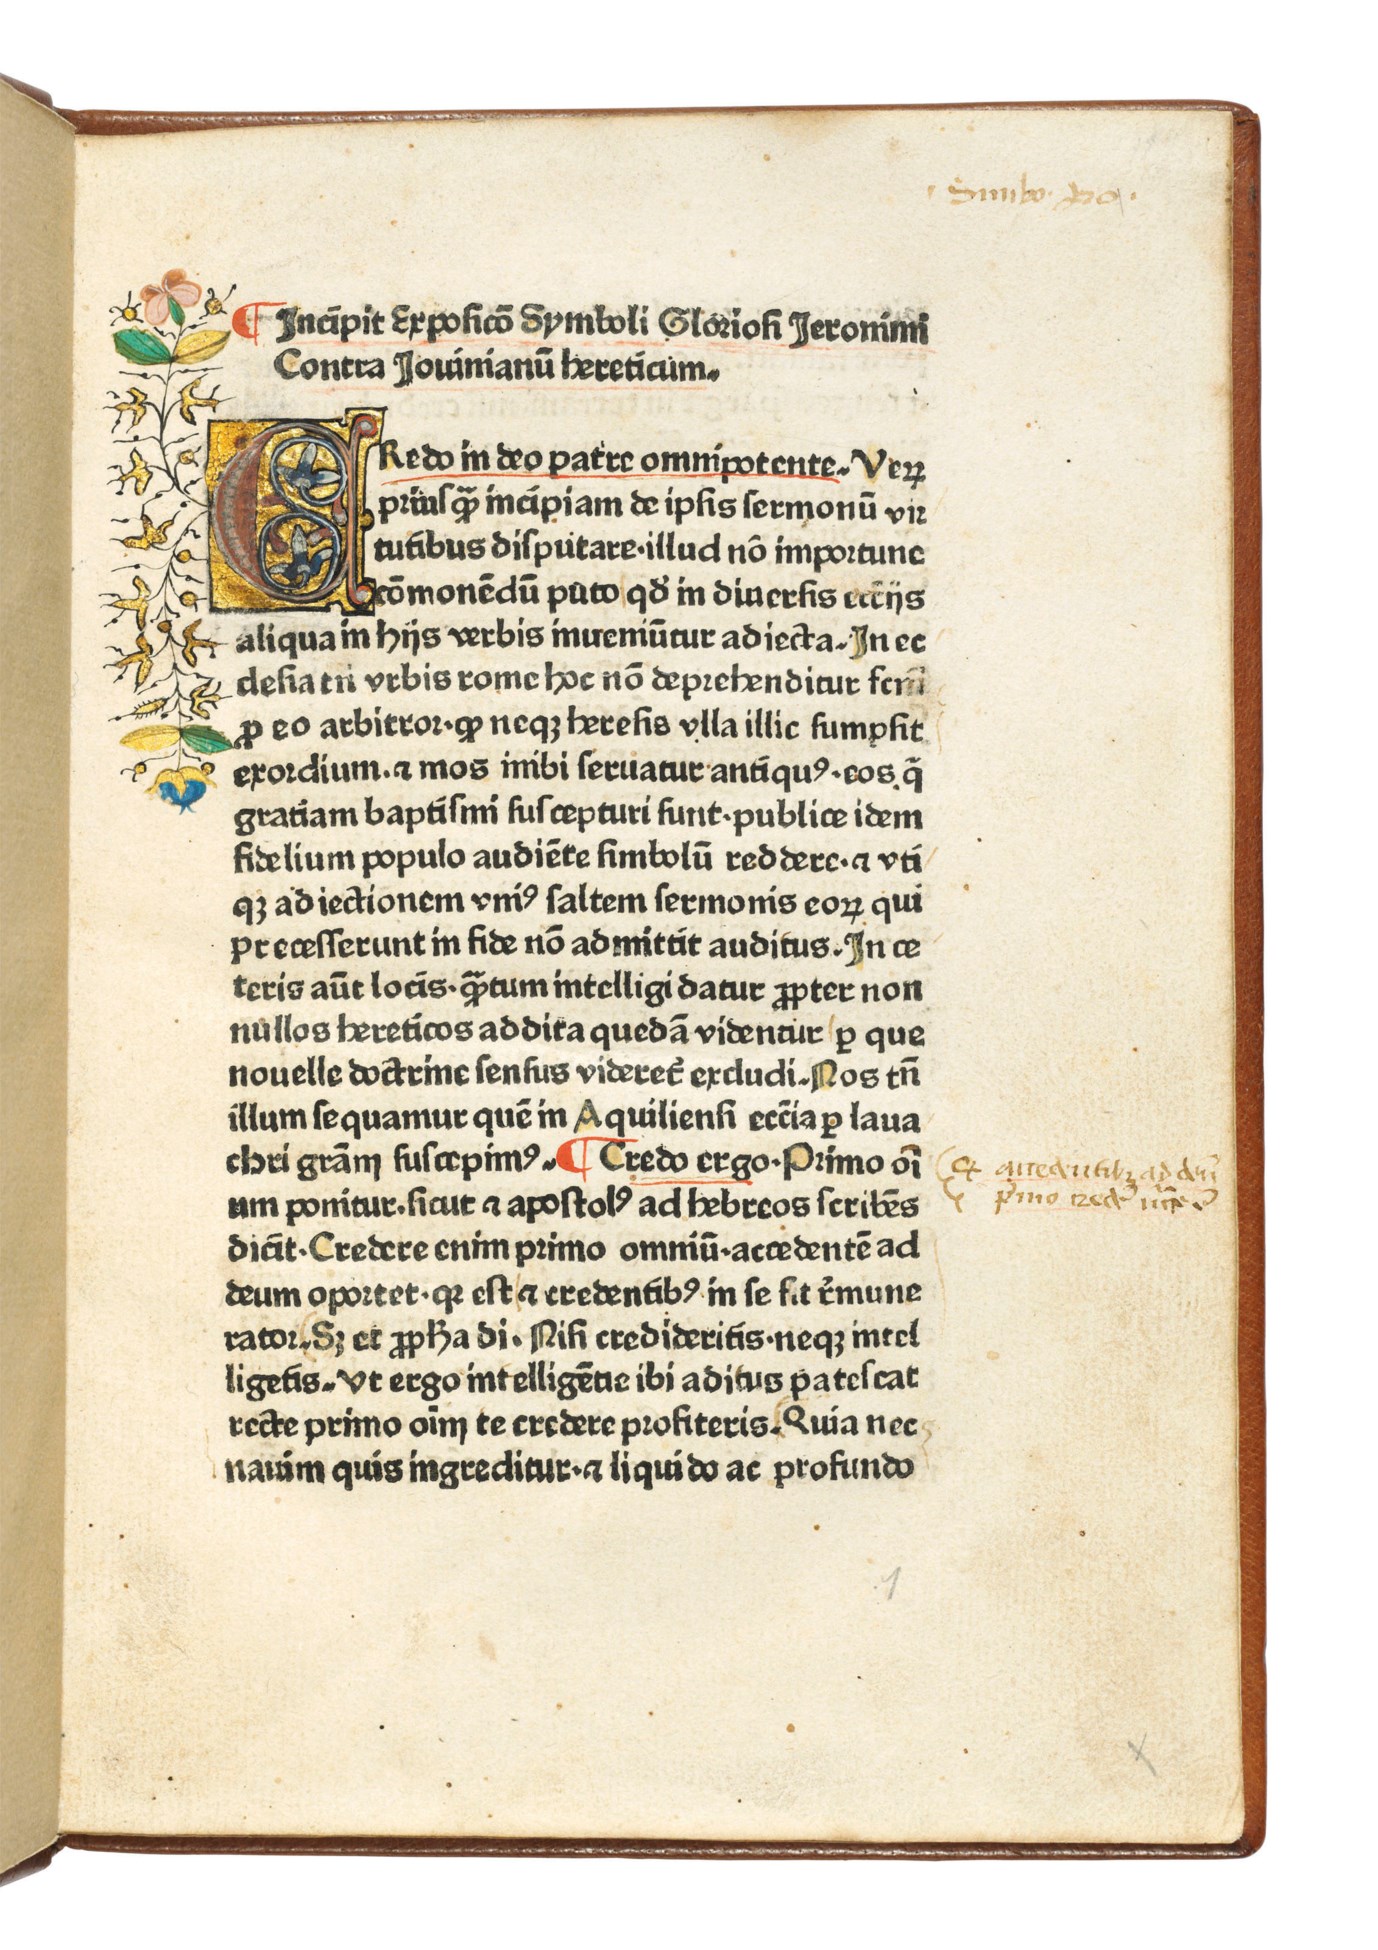 ¶ Incipit Exposicō Symboli Gloriosi Jeronimi
Contra Jouinianū hereticum.
CRedo in deo patre omnipotente. Veꝝ
priusꝙ̃ incipiam de ipsis sermonū vir
tutibus disputare·illud nō importune
cōmonēdū puto qđ in diuersis ecc̄ijs
aliqua in hijs verbis inueniūtur adiecta. In ec
clesia tn̄ vrbis rome hoc nō deprehenditur
ꝓ eo arbitror·ꝙ neqꝫ heresis vlla illic sumpsit
exordium.⁊ mos inibi seruatur antiquꝰ·eos q̄
gratiam baptismi suscepturi sunt·publice idem
fidelium populo audiēte simbolū reddere·⁊ vti
qꝫ adiectionem vniꝰ saltem sermonis eoꝝ qui
precesserunt in fide nō admittit auditus. In ce
teris aūt locis·ꝙ̃tum intelligi datur ꝓpter non
nullos hereticos addita quedā videntur ꝑ que
nouelle doctrine sensus videret᷑ excludi. Nos tn̄
illum sequamur quē in Aquiliensi ecc̄ia ꝑ laua
chri grām suscepimꝰ. ¶ Credo ergo·Primo oī
um ponitur·sicut ⁊ apostolꝰ ad hebreos scribēs
dicit·Credere enim primo omniū·accedentē ad
deum oportet·qꝛ est ⁊ credentibꝰ in se sit r̄mune
rator. Sꝫ et ꝓpħa di. Nisi credideritis·neqꝫ intel
ligetis. Vt ergo intelligētie ibi aditus patescat
recte primo oīm te credere profiteris. Quia nec
nauim quis ingreditur·⁊ liquido ac profundo
1
x